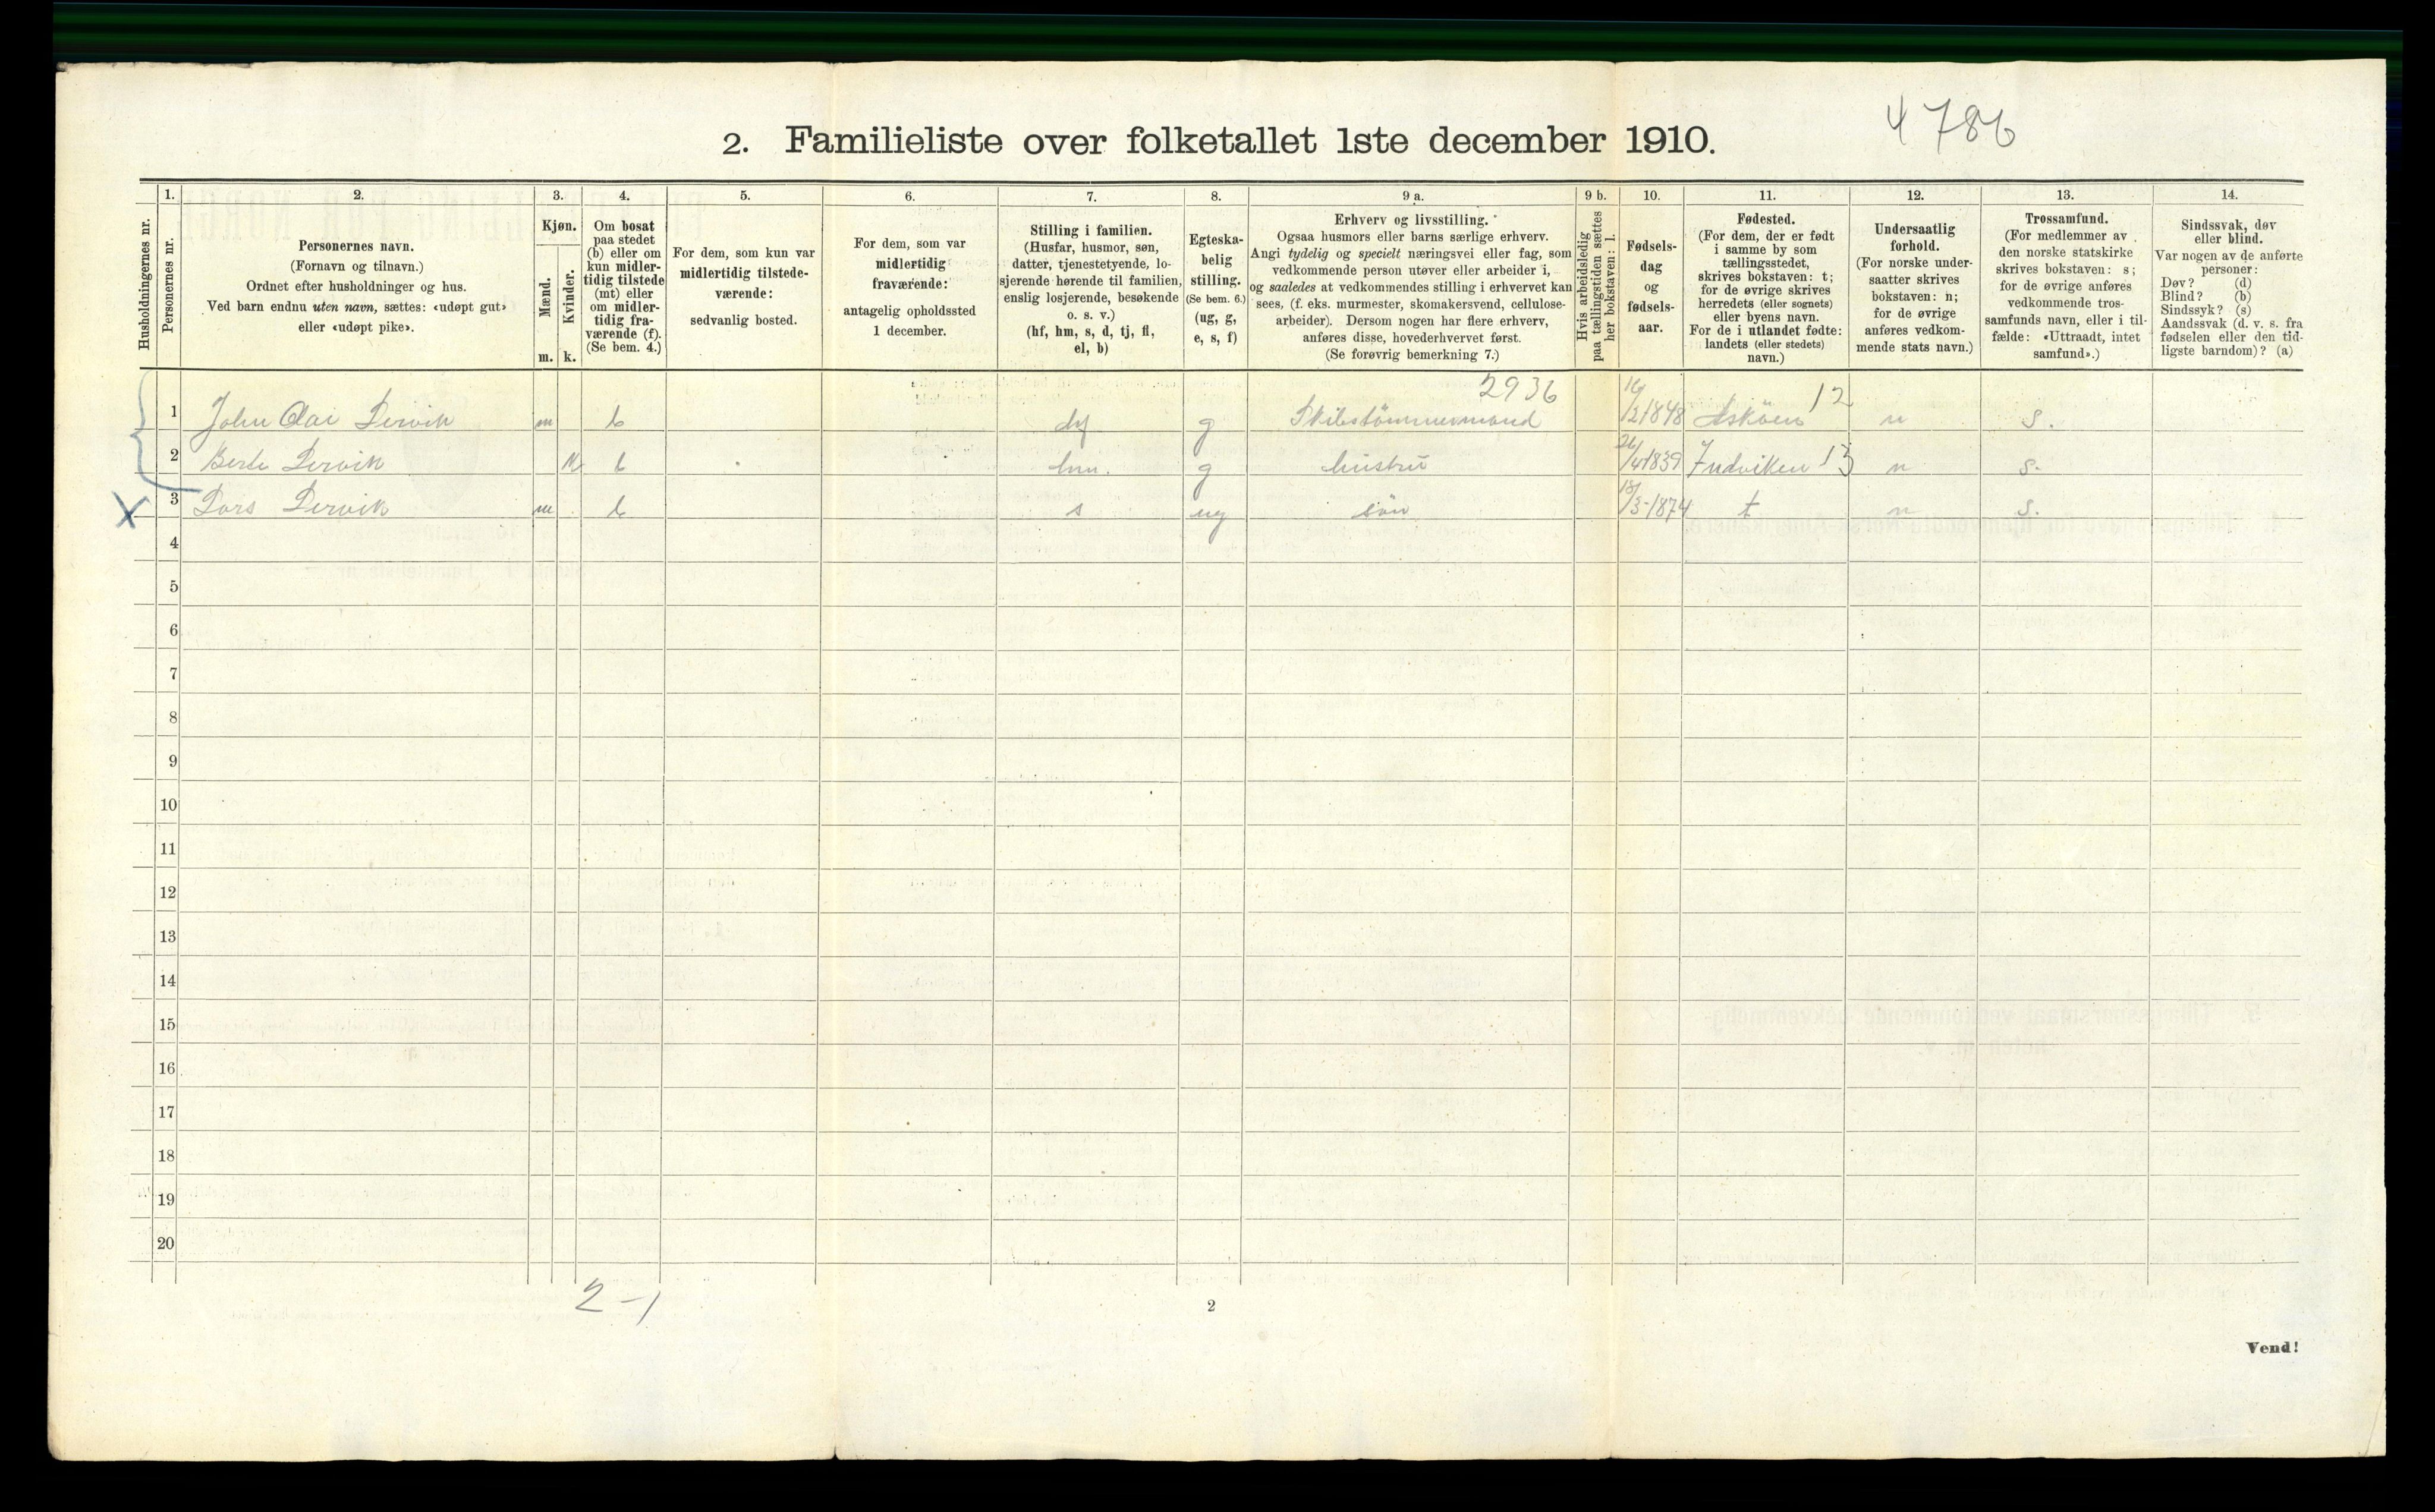 4786
2. Familieliste over folketallet 1ste december 1910.
Husholdningernes nr.
1.
Personernes nr.
2.
Personernes navn.
(Fornavn og tilnavn.)
Ordnet efter husholdninger og hus.
Ved barn endnu uten navn, sættes: «udøpt gut»
eller «udøpt pike».
3.
Kjøn.
Mænd.
m.
Kvinder.
k.
4.
Om bosat
paa stedet
(b) eller om
kun midler-
tidig tilstede
(mt) eller
om midler-
tidig fra-
værende (f).
(Se bem. 4.)
5.
For dem, som kun var
midlertidig tilstede-
værende:
sedvanlig bosted.
6.
For dem, som var
midlertidig
fraværende:
antagelig opholdssted
1 december.
7.
Stilling i familien.
(Husfar, husmor, søn,
datter, tjenestetyende, lo-
sjerende hørende til familien,
enslig losjerende, besøkende
o. s. v.)
(hf, hm, s, d, tj, fl,
el, b)
8.
Egteska-
belig
stilling.
(Se bem. 6.)
(ug, g,
e, s, f)
9 a.
Erhverv og livsstilling.
Ogsaa husmors eller barns særlige erhverv.
Angi tydelig og specielt næringsvei eller fag, som
vedkommende person utøver eller arbeider i,
og saaledes at vedkommendes stilling i erhvervet kan
sees, (f. eks. murmester, skomakersvend, cellulose-
arbeider). Dersom nogen har flere erhverv,
anføres disse, hovederhvervet først.
(Se forøvrig bemerkning 7.)
9 b.
Hvis arbeidsledig
paa tællingstiden sættes
her bokstaven: l.
10.
Fødsels-
dag
og
fødsels-
aar.
11.
Fødested.
(For dem, der er født
i samme by som
tællingsstedet,
skrives bokstaven: t;
for de øvrige skrives
herredets (eller sognets)
eller byens navn.
For de i utlandet fødte:
landets (eller stedets)
navn.)
12.
Undersaatlig
forhold.
(For norske under-
saatter skrives
bokstaven: n;
for de øvrige
anføres vedkom-
mende stats navn.)
13.
Trossamfund.
(For medlemmer av
den norske statskirke
skrives bokstaven: s;
for de øvrige anføres
vedkommende tros-
samfunds navn, eller i til-
fælde: «Uttraadt, intet
samfund».)
14.
Sindssvak, døv
eller blind.
Var nogen av de anførte
personer:
Døv? (d)
Blind? (b)
Sindssyk? (s)
Aandssvak (d. v. s. fra
fødselen eller den tid-
ligste barndom)? (a)
2936
1 John m b hf g Skibstömmermand 1848 Asköen 12 n s.
2 k b hm. g hustru 26/4 1839 Indviken 13 n s.
X 3 Lars m b s ug sön 18/3-1874 t n s.
4
5
6
7
8
9
10
11
12
13
14
15
16
17
18
19
20
2-1
2
Vend!